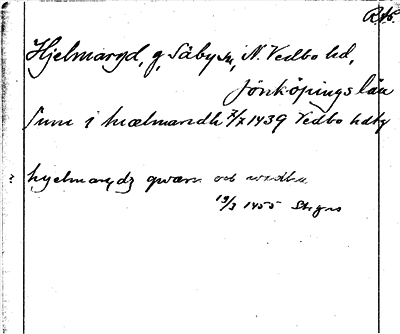 RAp.
Hjelmaryd, g, Säby sn, N. Vedbo hd,
Jönköpings län
Sune i hiælmaridh 7/7 1439 Vedbo hdsb
hyelmarydz qwærn och
19/3 1455